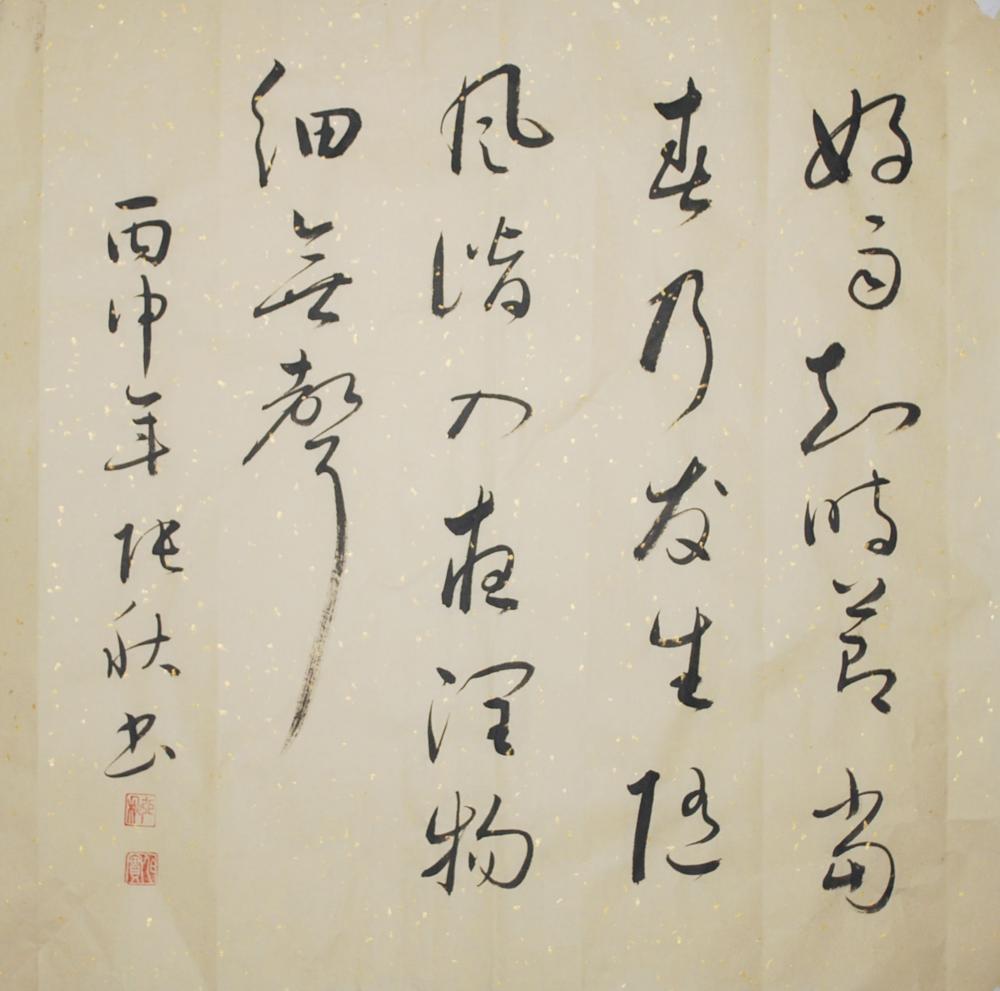 好雨知時節當
春乃發生隨
風潛入夜潤物
細無聲
丙申年張秋書